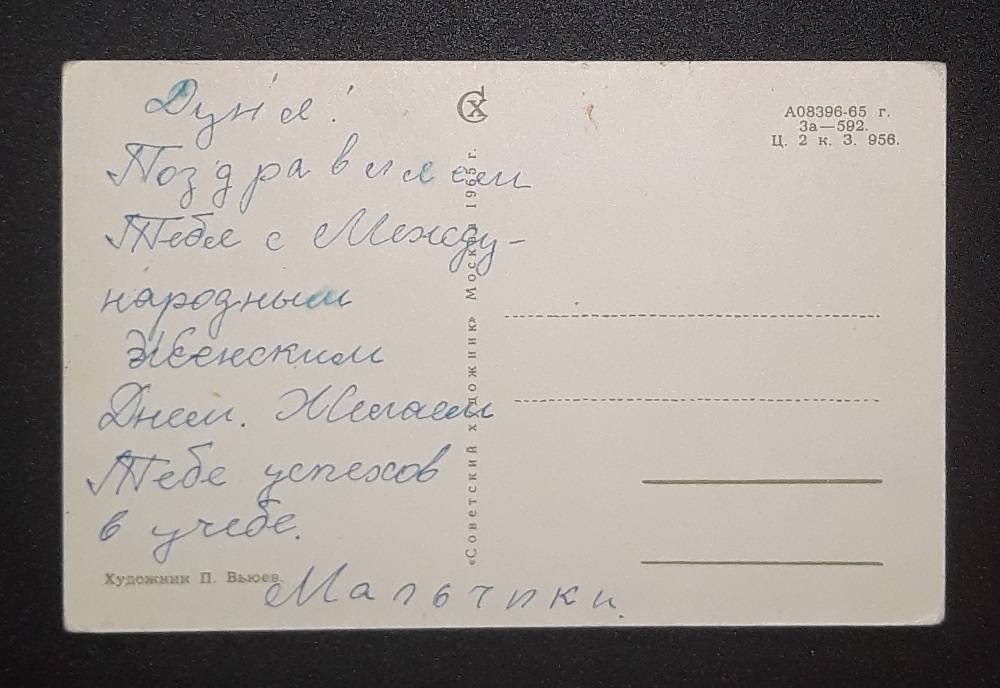 Дуня!
Поздравляем
Тебя с Между-
народным
Женским
Днем. Желаем
Тебе успехов
в учебе.
Мальчики.
Художник П. Вьюев.
«Советский художник» Москва 1965 г.
СХ
А08396-65 г.
За—592.
Ц. 2 к. З. 956.